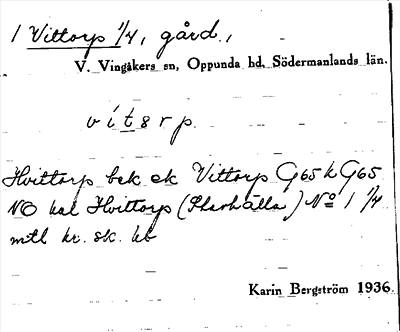 1 Vittorp 1/4, gård,
V. Vingåkers sn, Oppunda hd. Södermanlands län.
vítərp
Hvittorp bek ek Vittorp G65k G65
NO kal Hvittorp (Skarhälla) No 1 1/4
mtl kr. sk. kb
Karin Bergström 1936.